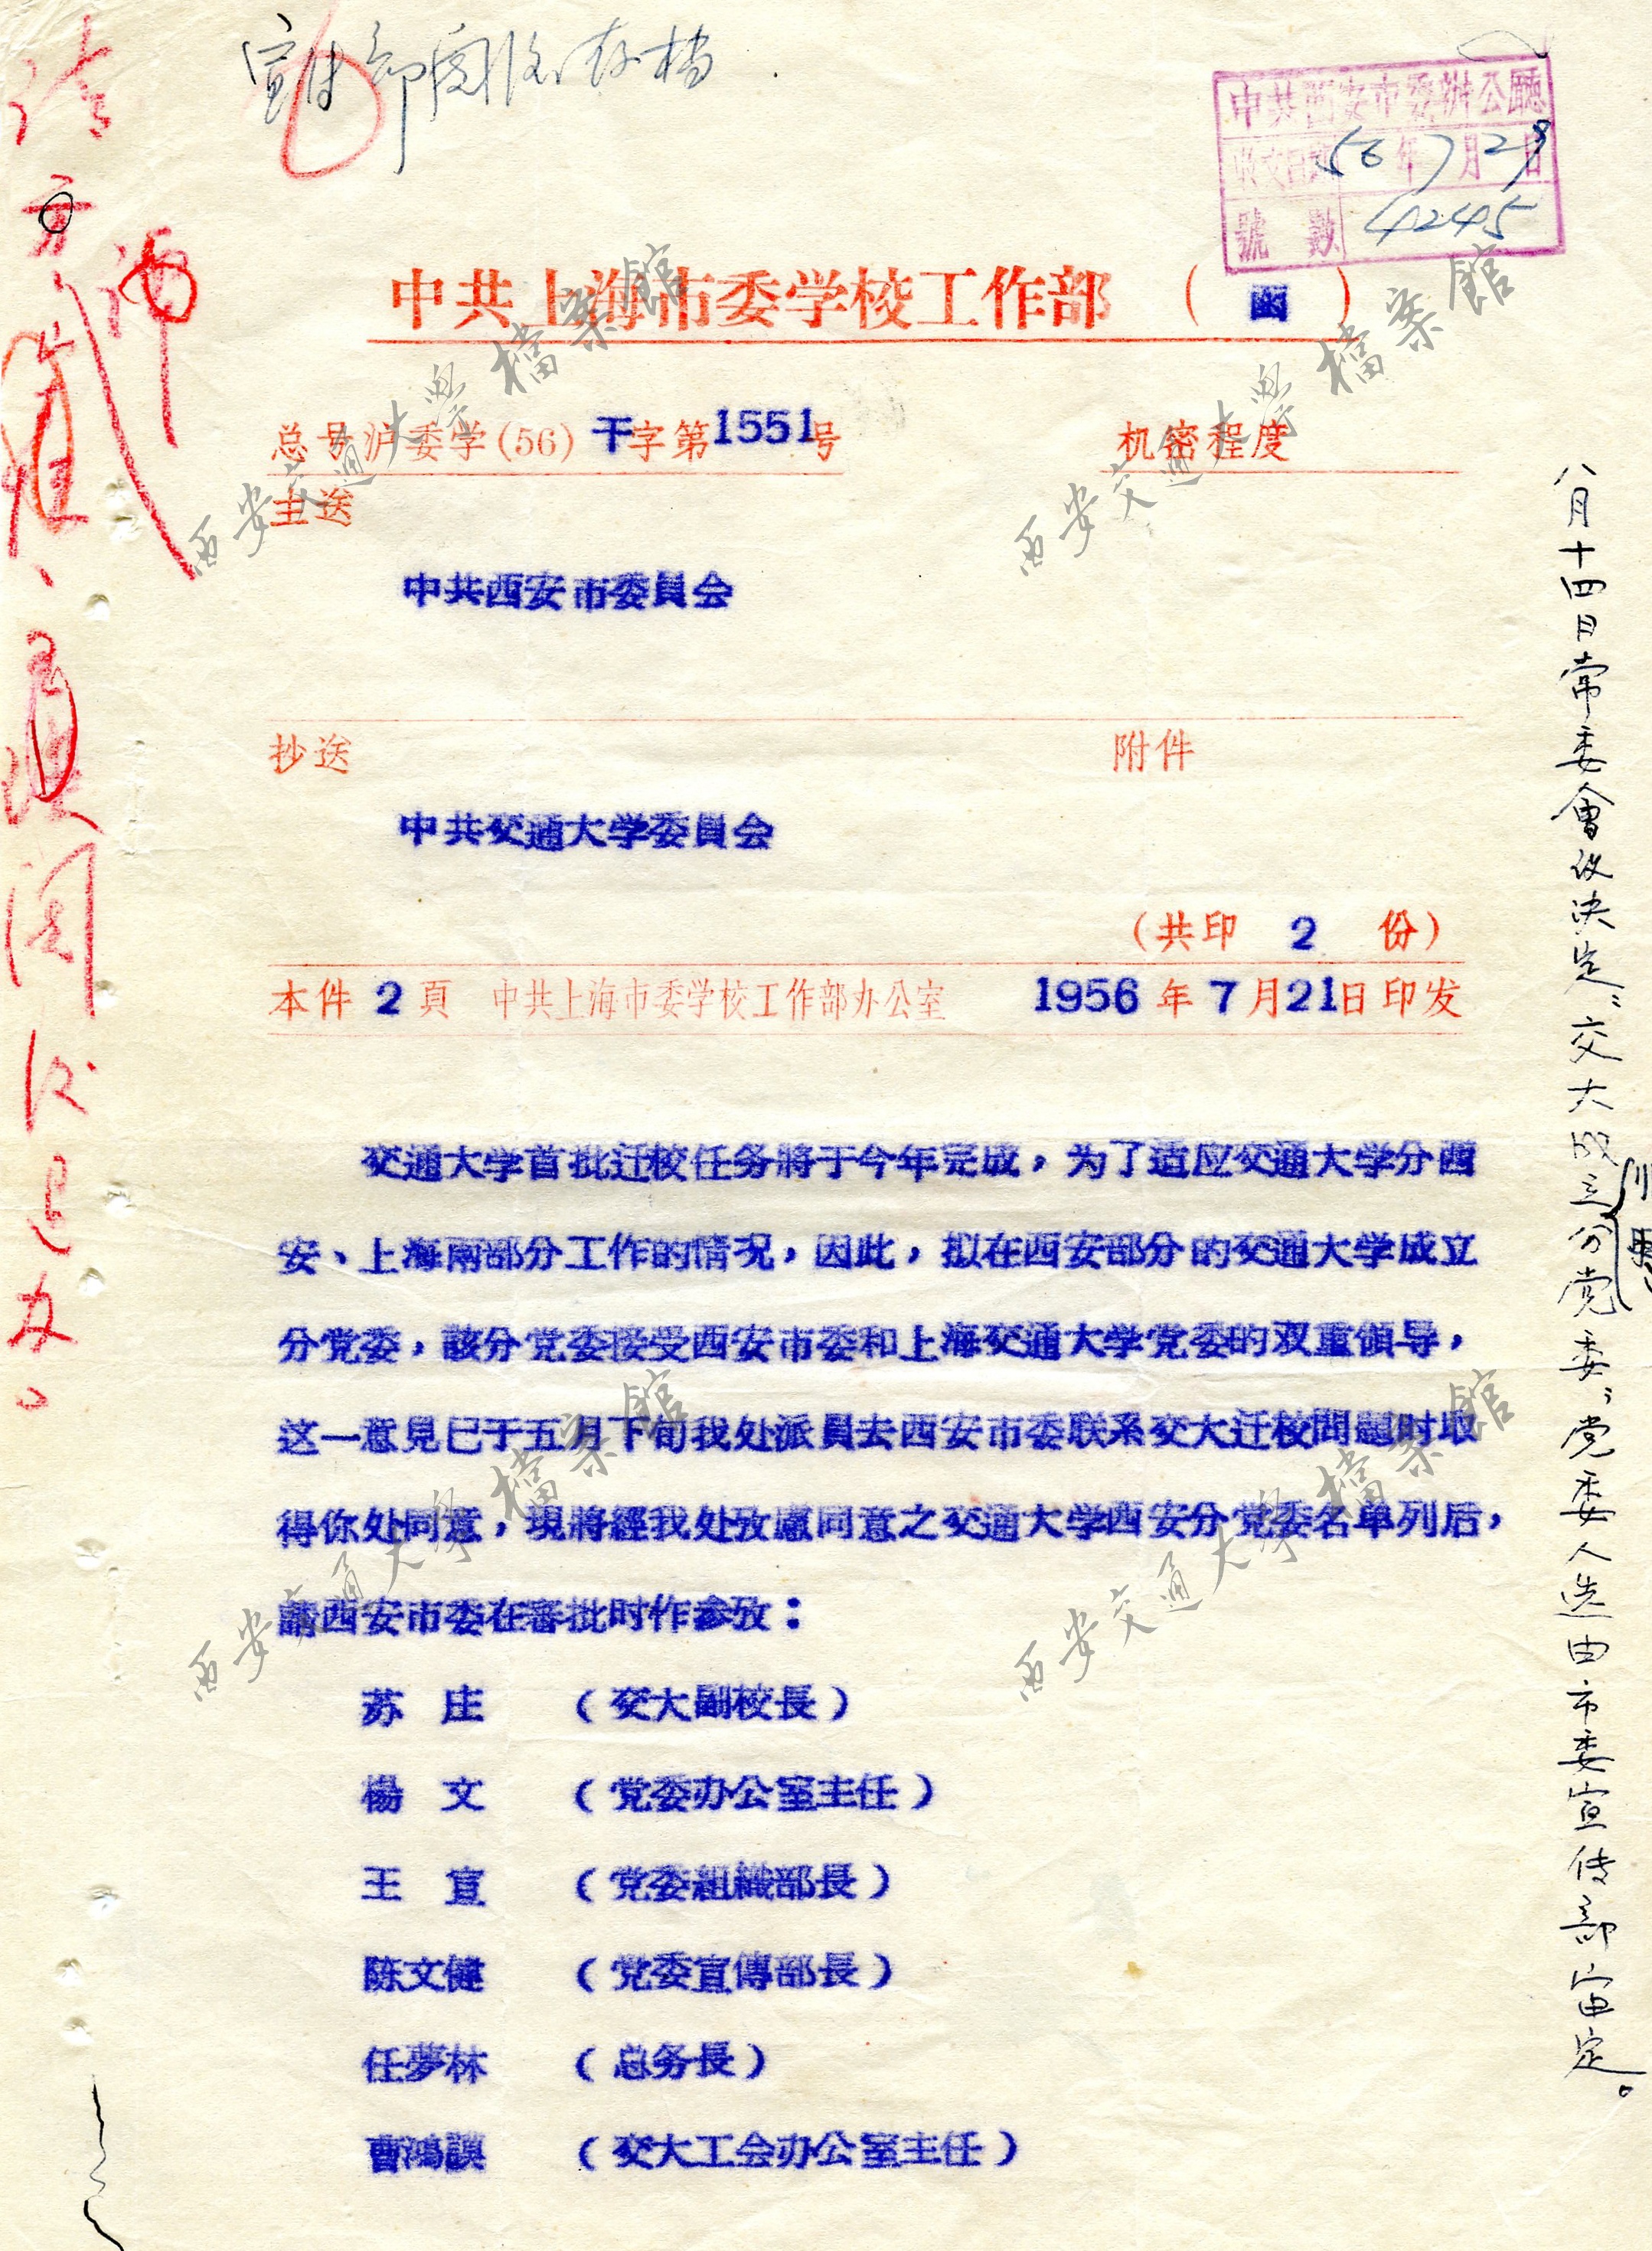 宣传部阅后存档
中共西安市委辦公廳
收文日期 56年7月28日
號數 4245
中共上海市委学校工作部(函)
总号沪委学(56)干字第1551号 机密程度
主送
中共西安市委員会
抄送 附件
中共交通大学委員会
(共印 2 份)
本件 2 頁 中共上海市委学校工作部办公室 1956 年 7 月21日印发
交通大学首批迁校任务將于今年完成,为了适应交通大学分西
安、上海兩部分工作的情况,因此,拟在西安部分的交通大学成立
分党委,該分党委接受西安市委和上海交通大学党委的双重領导,
这一意見已于五月下旬我处派員去西安市委联系交大迁校問題时取
得你处同意,現將經我处攷慮同意之交通大学西安分党委名单列后,
請西安市委在審批时作参攷:
苏 庄 (交大副校長)
楊 文 (党委办公室主任)
王 宣 (党委組織部長)
陈文健 (党委宣傳部長)
任夢林 (总务長)
曹鴻謨 (交大工会办公室主任)
八月十四日常委會议决定:“交大成立分党委”,党委人选由市委宣传部审定。
阅后退办。
西安交通大学檔案館
西安交通大学檔案館
西安交通大学檔案館
西安交通大学檔案館